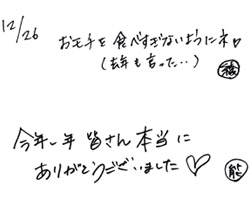 12/26
おモチを食べすぎないようにネ♡
(去年も言った‥)
今年一年皆さん本当に
ありがとうございました♡
熊